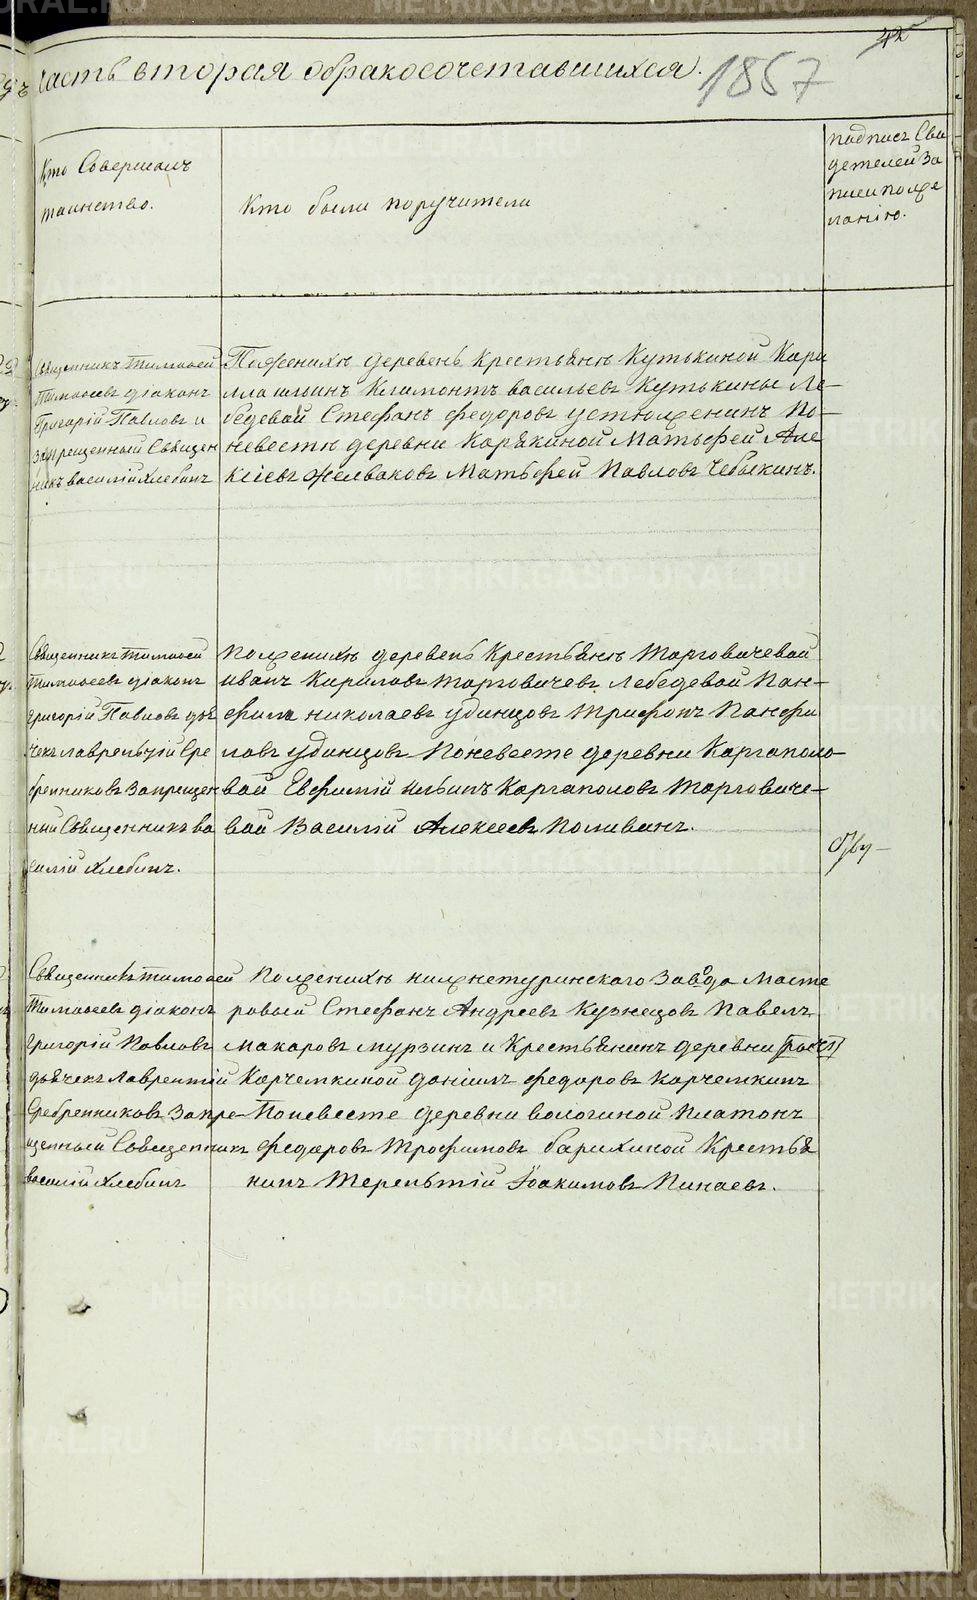 42
часть вторая обракосочетавшихся.
1857
Кто Совершалъ
таинство.
Кто были поручители
подпись Сви
детелей За
писи по же
ланію.
Священникъ Тимофей
Тимофеевъ діаконъ
Григорій Павловъ и
запрещенный Священ
никъ василій Хлебинъ
По женихѣ деревень крестьянѣ Кутькиной Кири
лла ильинъ Климонтъ васильевъ Кутькины Ле-
бедевой Стефанъ федоровъ устюженинъ По-
невестѣ деревни Карякиной Матьфей Але
ксіевъ желваковъ Матьфей Павловъ Чебыкинъ.
Священникъ Тимофей
Тимофеевъ діаконъ
григорій Павловъ дья
чекъ лаврентій Сре
бренниковъ Запрещен
ный Священникъ ва
силій Хлебинъ.
По женихѣ деревень Крестьянѣ Торговичевой
иванъ Кириловъ торговичевъ Лебедевой Пан-
фила николаевъ удинцовъ Трифонъ Панфи
ловъ удинцовъ По невесте деревни Каргаполо-
вой Евфимій ильинъ Каргаполовъ Торговиче-
вой Василій Алексеевъ Поливинъ.
Священникъ тимофей
Тимофеевъ діаконъ
григорій Павловъ
дьячекъ лаврентій
Сребренниковъ Запре-
щенный Священникъ
василій Хлебинъ
По женихѣ нижнетуринского Завода Масте
ровой Стефанъ Андреевъ Кузнецовъ Павелъ
макаровъ мурзинъ и Крестьянинъ деревни
Корчемкиной Даніилъ федоровъ Корчемкинъ
По невесте деревни вологиной Платонъ
федоровъ Трофимовъ барихиной Крестья
нинъ Терентій Іоакимовъ Пинаевъ.
METRIKI.GASO-URAL.RU